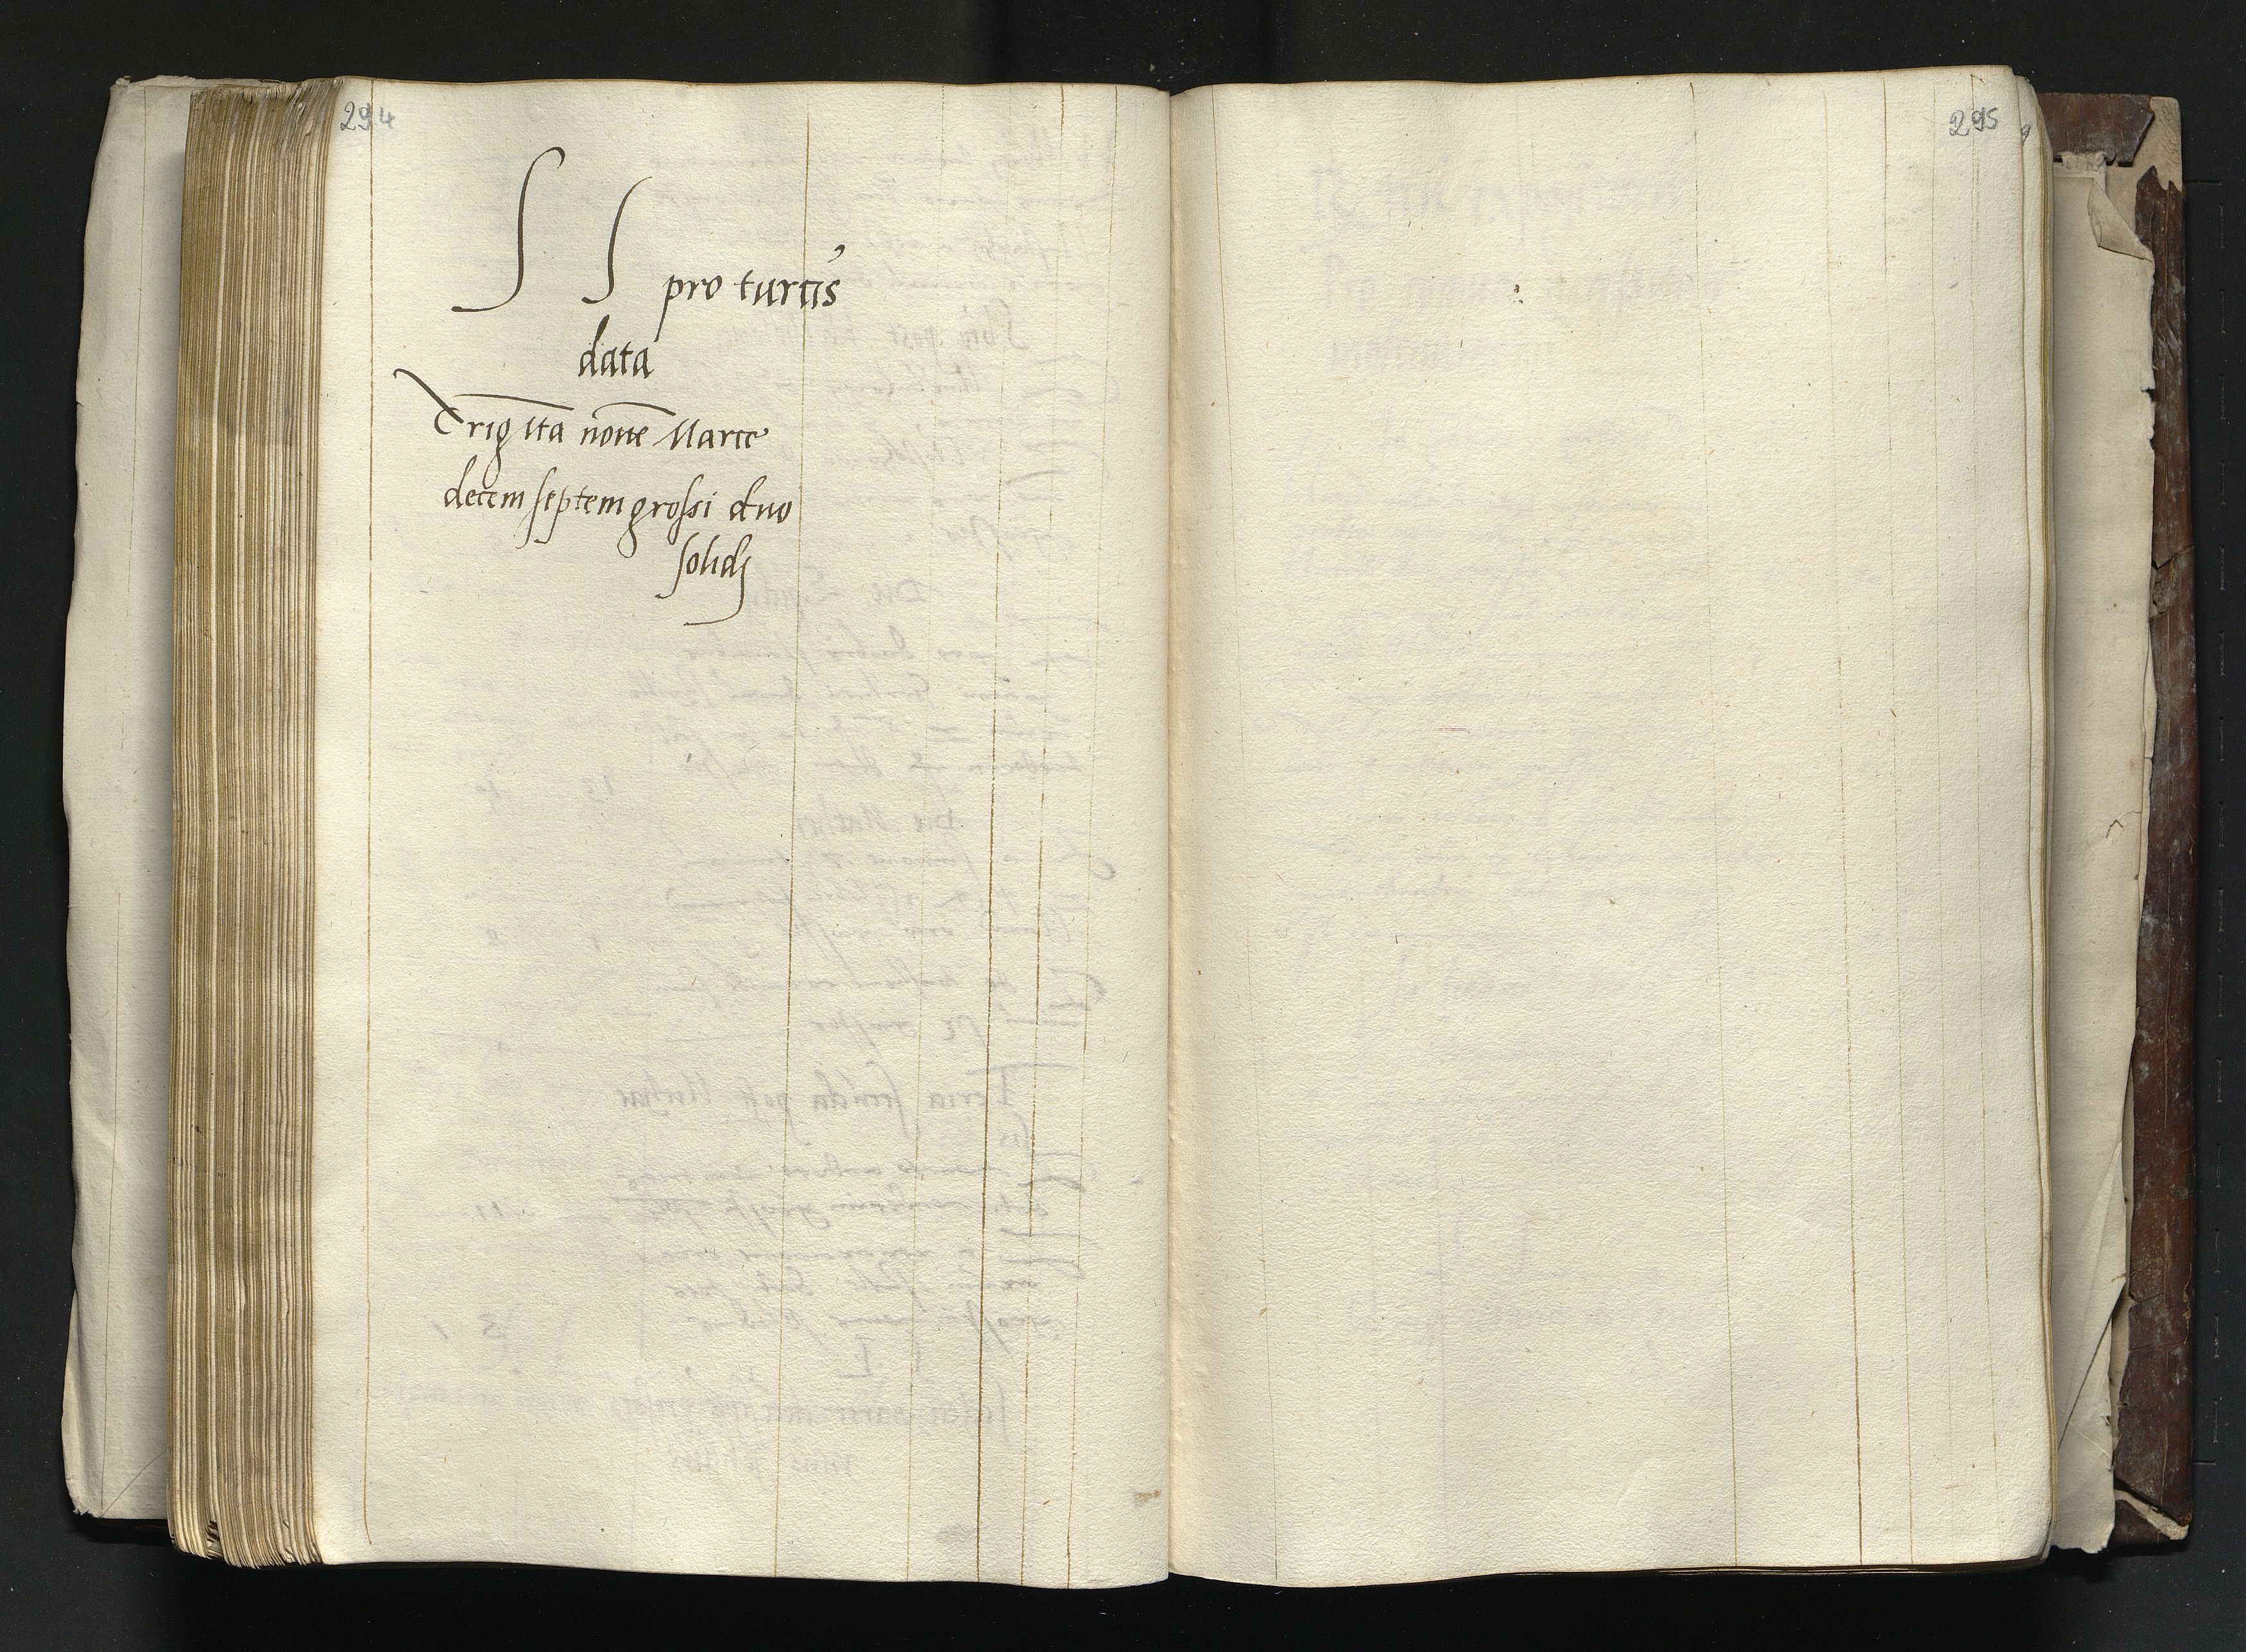 294
S S pro turris
data
Trigīta nōue Marce
decem septem grossi duo
solidj
295